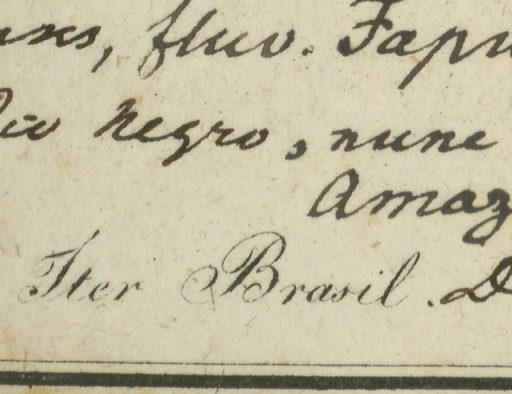 fluv. Japu
negro, nunc
Amaz
Iter Brasil. D